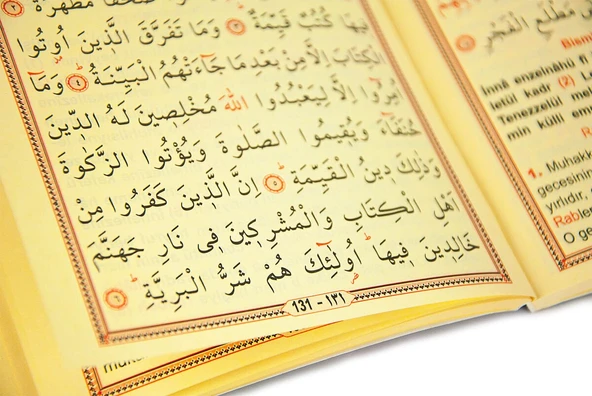 صُحُفًا مُطَهَّرَةً ﴿٢﴾
فِيهَا كُتُبٌ قَيِّمَةٌ ﴿٣﴾ وَمَا تَفَرَّقَ الَّذِينَ اُوتُوا
الْكِتَابَ اِلَّا مِنْ بَعْدِ مَا جَاءَتْهُمُ الْبَيِّنَةُ ﴿٤﴾ وَمَا
اُمِرُوا اِلَّا لِيَعْبُدُوا اللّٰهَ مُخْلِصِينَ لَهُ الدِّينَ
حُنَفَاءَ وَيُقِيمُوا الصَّلٰوةَ وَيُؤْتُوا الزَّكٰوةَ
وَذٰلِكَ دِينُ الْقَيِّمَةِ ﴿٥﴾ اِنَّ الَّذِينَ كَفَرُوا مِنْ
اَهْلِ الْكِتَابِ وَالْمُشْرِكِينَ فِى نَارِ جَهَنَّمَ
خَالِدِينَ فِيهَا اُولٰئِكَ هُمْ شَرُّ الْبَرِيَّةِ ﴿٦﴾
131 - ١٣١
مَطْلَعِ الْفَجْرِ
Bism
İnnâ enzelnâhü fî
letül kadr (2) Le
Tenezzelül mel
min külli em
R
1. Muhakk
gecesinin
yrıdır,
Rabler
O ge